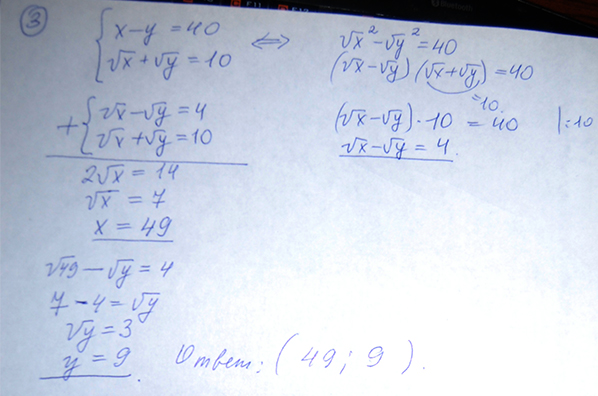 ③
{ x-y=40
{ √x+√y=10 <=>
√x²-√y²=40
(√x-√y)(√x+√y)=40
=10.
(√x-√y)·10=40 |:10
√x-√y=4.
+{ √x-√y=4
{ √x+√y=10
2√x=14
√x=7
x=49
√49-√y=4
7-4=√y
√y=3
y=9.
Ответ: (49; 9).